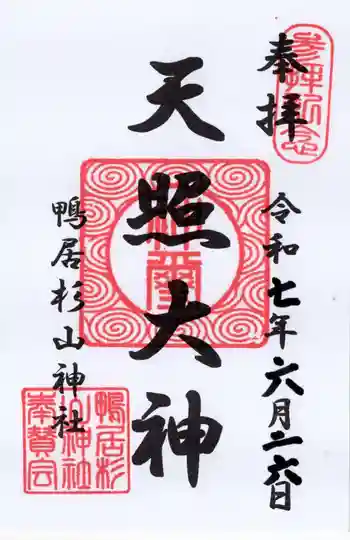 奉拝
参拝記念
令和七年六月二六日
天照大神
神璽
鴨居杉山神社
鴨居杉
山神社
奉賛会